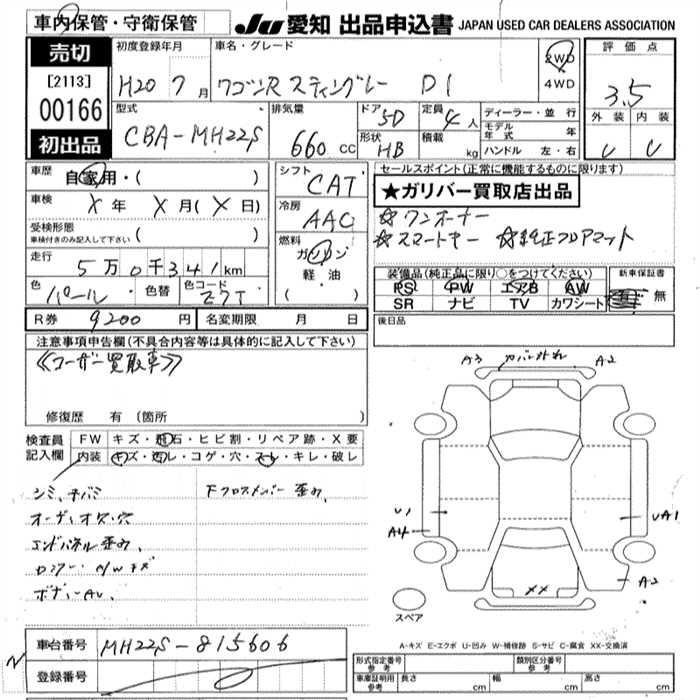 車内保管・守衛保管
JU 愛知 出品申込書 JAPAN USED CAR DEALERS ASSOCIATION
売切
[2113]
00166
初出品
初度登録年月
H20 7月
車名・グレード
ワゴンR スティングレー DI
2WD
4WD
評価点
3.5
外装 内装
型式
CBA-MH22S
排気量
660 cc
ドア 5D
形状 HB
定員 4人
積載 kg
ディーラー・並行
モデル年式 年
ハンドル 左・右
車歴 自家用・( )
車検 X年 X月(X日)
受検形態
車検付きのみ記入して下さい ( )
走行 5万0千341km
色 パール 色替 色コード Z7T
R券 9200円 名変期限 月 日
シフト CAT
冷房 AAC
燃料
ガソリン
軽・油
( )
セールスポイント(正常に機能するものに限ります)
★ガリバー買取店出品
☆ワンオーナー
☆スマートキー ☆純正フロアマット
装備品(純正品に限り○をつけてください)
PS PW エアB AW
SR ナビ TV カワシート
新車保証書
有 無
後日品
注意事項申告欄(不具合内容等は具体的に記入して下さい)
≪ユーザー買取車≫
修復歴 有 (箇所 )
検査員記入欄
FW キズ・飛石・ヒビ割・リペア跡・X要
内装 キズ・汚レ・コゲ・穴・スレ・キレ・破レ
シミ、チバミ
下フロスメンバー歪み
オーディオ穴・穴
エンドパネル歪み
ロッカーA/Wキズ
A3 カバー外れ A2
U1
A4
UA1
A2
XX
スペア
A-キズ E-エクボ U-凹み W-補修跡 S-サビ C-腐食 XX-交換済
車台番号 MH22S-815606
登録番号
形式指定番号 参考
類別区分番号 参考
車庫証明用 参考 長さ cm 幅 cm 高さ cm